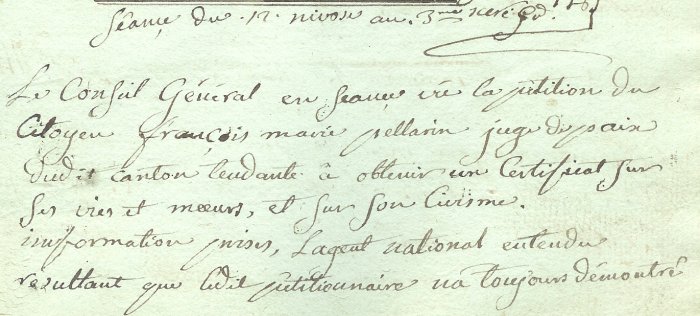 Séance du 12 nivose au 3me
Le Conseil Général en seance vu la pétition du
Citoyen françois marie pellarin juge de paix
dudit canton tendante à obtenir un Certificat sur
ses vies et mœurs, et sur son Civisme.
information prises, Lagent national entendu
resultant que ledit petitionnaire na toujours démontré